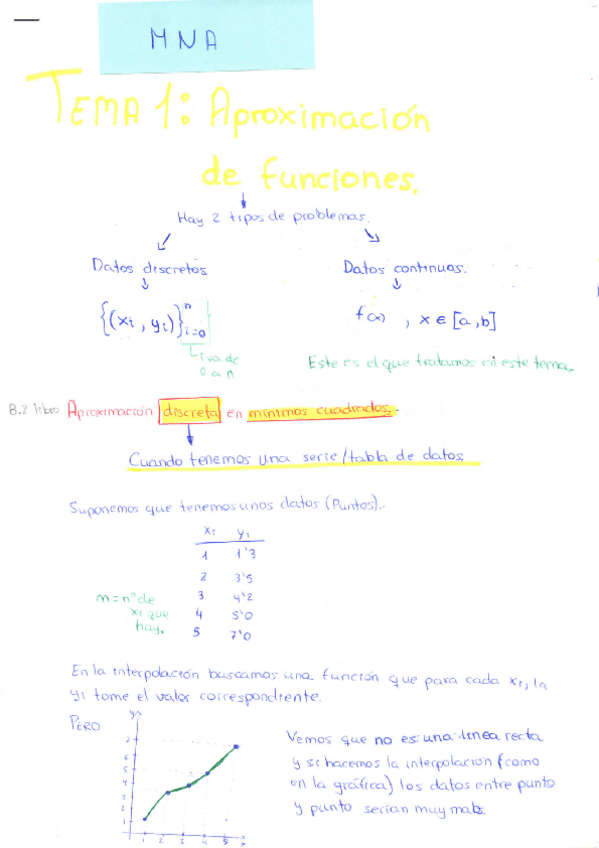 MNA
TEMA 1: Aproximación
de funciones.
Hay 2 tipos de problemas.
Datos discretos
Datos continuos.
{(xi, yi)}ⁿi=0
f(x) , x ∈ [a,b]
i va de
0 a n
Este es el que tratamos en este tema.
8.2 libro Aproximación discreta en mínimos cuadrados.
Cuando tenemos una serie/tabla de datos
Suponemos que tenemos unos datos (Puntos).
xi yi
1 1'3
2 3'5
3 4'2
4 5'0
5 7'0
m = nº de
xi que
hay.
En la interpolación buscamos una función que para cada xi, la
yi tome el valor correspondiente.
PERO
Vemos que no es una línea recta
y si hacemos la interpolación (como
en la gráfica) los datos entre punto
y punto serían muy malos.